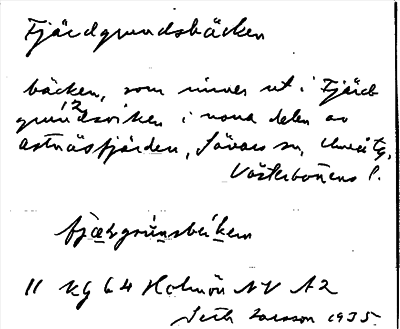 Fjärdgrundsbäcken
bäcken, som rinner ut i Fjärd
grundsviken i norra delen av
Ostnäsfjärden, Sävars sn,
Västerbottens l.
11 kg 64 Holmön NV A2
Larsson 1935